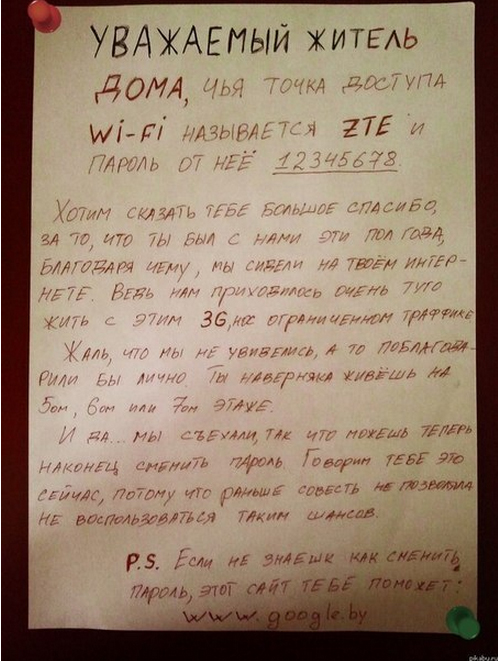 УВАЖАЕМЫЙ ЖИТЕЛЬ
ДОМА, ЧЬЯ ТОЧКА ДОСТУПА
Wi-Fi НАЗЫВАЕТСЯ ZTE И
ПАРОЛЬ ОТ НЕЁ 12345678.
ХОТИМ СКАЗАТЬ ТЕБЕ БОЛЬШОЕ СПАСИБО,
ЗА ТО, ЧТО ТЫ БЫЛ С НАМИ ЭТИ ПОЛ ГОДА,
БЛАГОДАРЯ ЧЕМУ, МЫ СИДЕЛИ НА ТВОЁМ ИНТЕР-
НЕТЕ. ВЕДЬ НАМ ПРИХОДИЛОСЬ ОЧЕНЬ ТУГО
ЖИТЬ С ЭТИМ 3G, ОГРАНИЧЕННОМ ТРАФФИКЕ
ЖАЛЬ, ЧТО МЫ НЕ УВИДЕЛИСЬ, А ТО ПОБЛАГОДА-
РИЛИ БЫ ЛИЧНО. ТЫ НАВЕРНЯКА ЖИВЁШЬ НА
5ом, 6ом ИЛИ 7ом ЭТАЖЕ.
И ДА... МЫ СЪЕХАЛИ, ТАК ЧТО МОЖЕШЬ ТЕПЕРЬ
НАКОНЕЦ СМЕНИТЬ ПАРОЛЬ. ГОВОРИМ ТЕБЕ ЭТО
СЕЙЧАС, ПОТОМУ ЧТО РАНЬШЕ СОВЕСТЬ НЕ ПОЗВОЛЯЛА
НЕ ВОСПОЛЬЗОВАТЬСЯ ТАКИМ ШАНСОВ.
P.S. ЕСЛИ НЕ ЗНАЕШЬ КАК СМЕНИТЬ
ПАРОЛЬ, ЭТОТ САЙТ ТЕБЕ ПОМОЖЕТ:
www.google.by
pikabu.ru